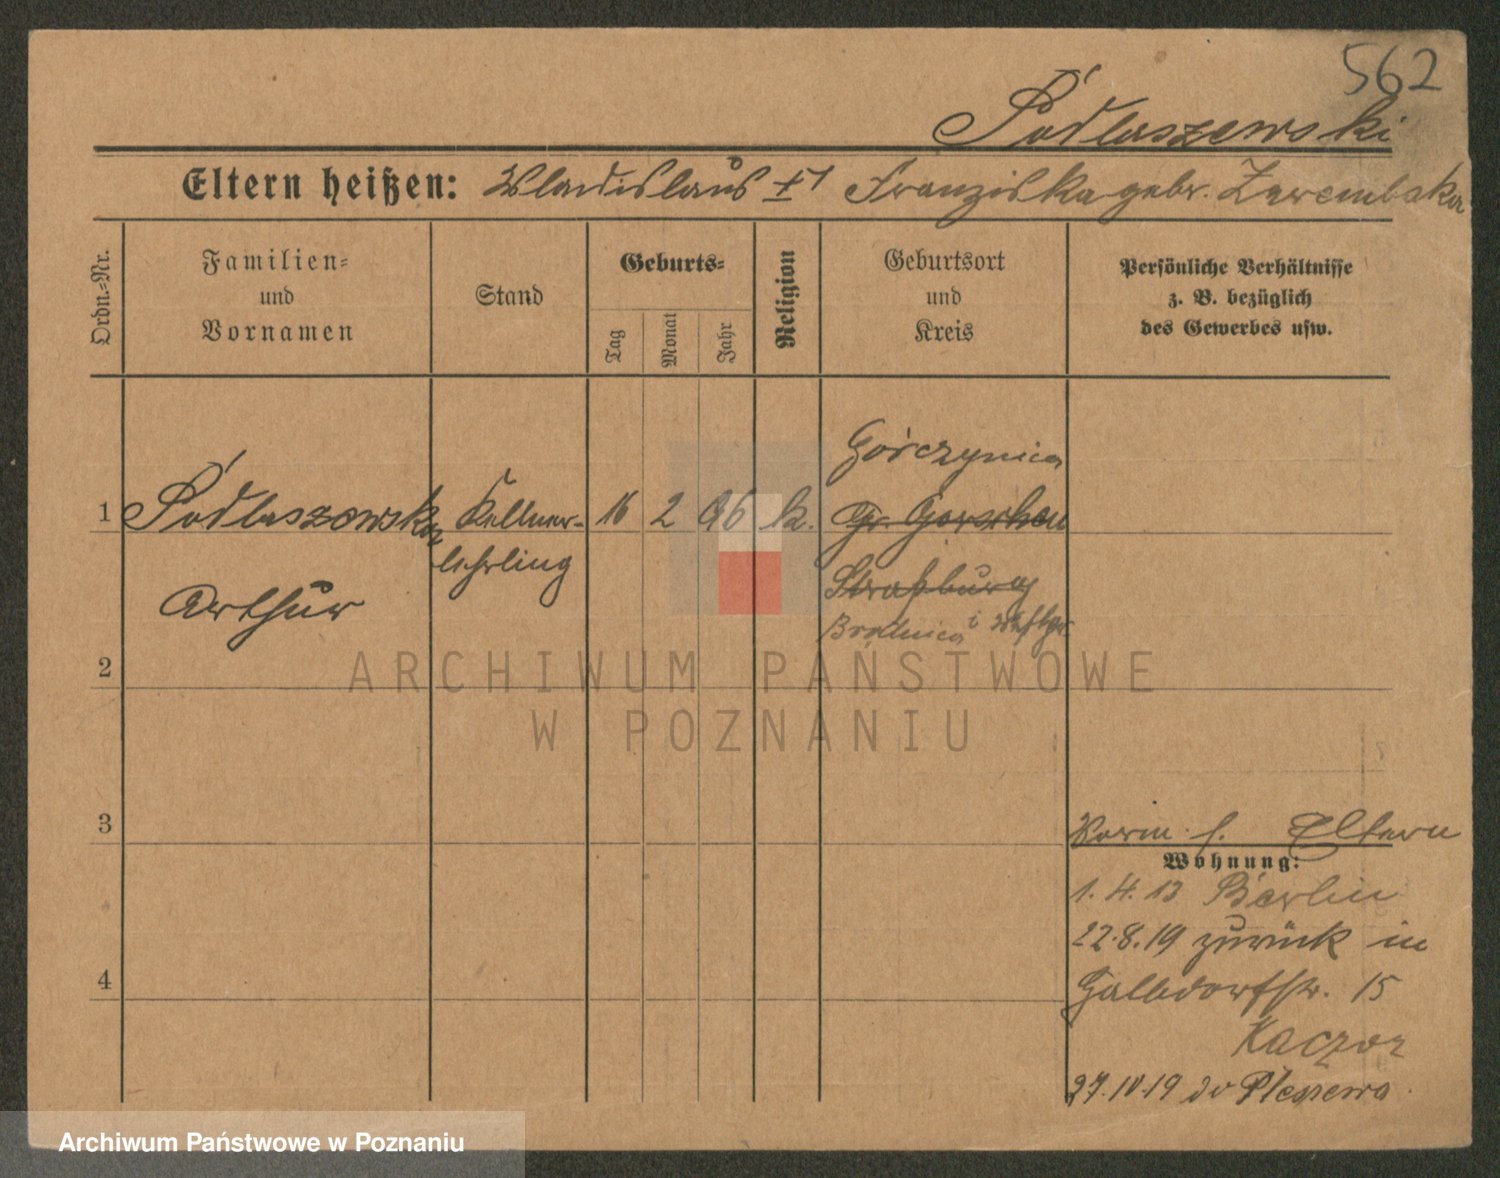 562
Podlaszewski
Eltern heißen: Wladislaus Franziska gebr. Zarembska
Ordn.-Nr.
Familien-
und
Vornamen
Stand
Geburts-
Tag
Monat
Jahr
Religion
Geburtsort
und
Kreis
Persönliche Verhältnisse
z. B. bezüglich
des Gewerbes usw.
Górczynica
1 Podlaszewski Kellner- 16 2 96 k. Gr. Gorschen
lehrling Straßburg
Arthur Brodnica
2
3
Eltern
Wohnung:
1. 4. 13 Berlin
22.8.19 zurück in
4
Gallwdorfstr. 15
Kaczor
27.10.19 do Pleszewa.
ARCHIWUM PAŃSTWOWE
W POZNANIU
Archiwum Państwowe w Poznaniu